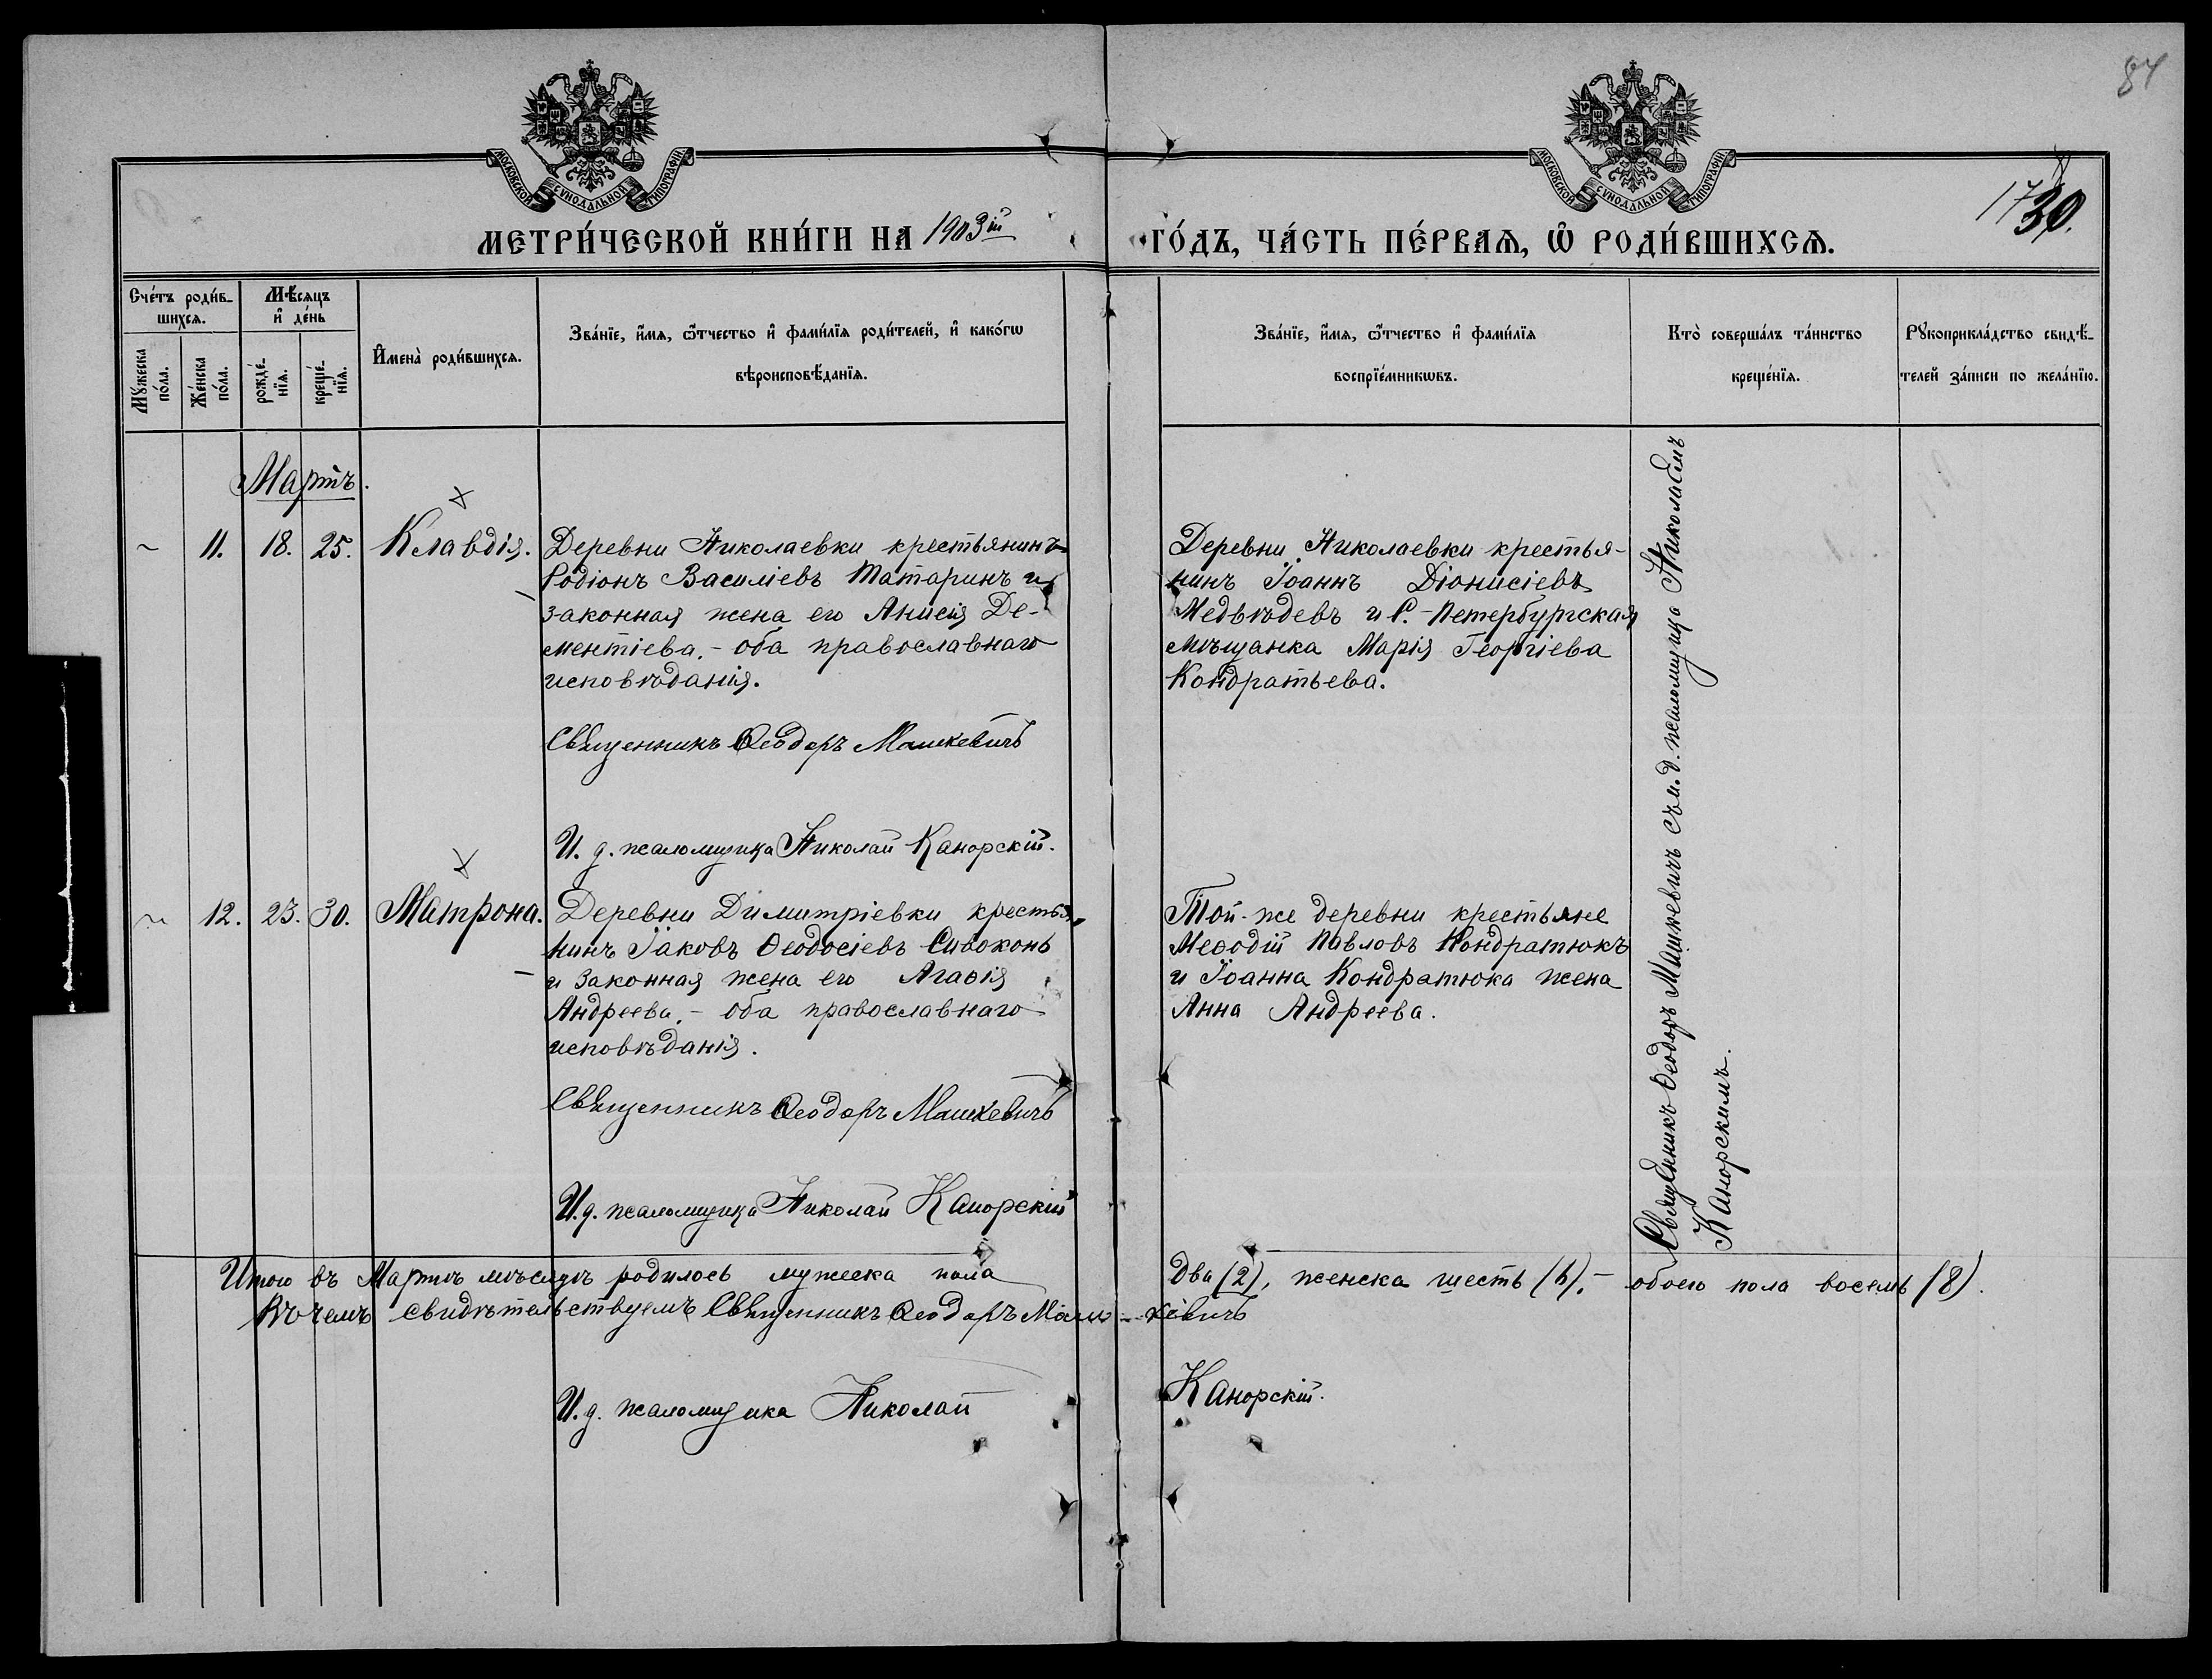 84
МОСКОВСКОЙ СУНОДАЛЬНОЙ ТИПОГРАФІИ.
МОСКОВСКОЙ СУНОДАЛЬНОЙ ТИПОГРАФІИ.
1730.
МЕТРИ́ЧЕСКОЙ КНИ́ГИ НА 1903ій ГО́ДЪ, ЧА́СТЬ ПЕ́РВАѦ, Ѡ РОДИ́ВШИХСѦ.
Сче́тъ роди́в-
шихсѧ.
Мꙋжеска
по́ла.
Же́нска
по́ла.
Мѣ́сѧцъ
и҆ де́нь
рожде́-
нїѧ.
креще́-
нїѧ.
И҆мена̀ роди́вшихсѧ.
Зва́нїе, и҆́мѧ, ѻ҆́тчество и҆ фами́лїѧ роди́телей, и҆ како́гѡ
вѣроисповѣ́данїѧ.
Зва́нїе, и҆́мѧ, ѻ҆́тчество и҆ фами́лїѧ
воспрїе́мникѡвъ.
Кто̀ совершáлъ та́инство
креще́нїѧ.
Рꙋкоприкла́дство свидѣ́-
телей за́писи по жела́нїю.
Мартъ.
11. 18. 25. Клавдія.
Деревни Николаевки крестьянинъ
Родіонъ Василіевъ Татаринъ и
законная жена его Анисія Де-
ментіева. - оба православнаго
исповѣданія.
Священникъ Ѳеодоръ Машкевичъ
И. д. псаломщика Николай Канорскій.
Деревни Николаевки крестья-
нинъ Іоаннъ Діонисіевъ
Медвѣдевъ и С.-Петербургская
мѣщанка Марія Георгіева
Кондратьева.
12. 23. 30. Матрона.
Деревни Димитріевки крестья-
нинъ Іаковъ Ѳеодосіевъ Сивоконь
и законная жена его Агаѳія
Андреева. - оба православнаго
исповѣданія.
Священникъ Ѳеодоръ Машкевичъ
И. д. псаломщика Николай Канорскій
Той-же деревни крестьяне
Меѳодій Павловъ Кондратюкъ
и Іоанна Кондратюка жена
Анна Андреева.
Священникъ Ѳеодоръ Машкевичъ съ и. д. псаломщика Николаемъ
Канорскимъ.
Итого въ Мартѣ мѣсяцѣ родилось мужеска пола два (2), женска шесть (6). - обоего пола восемь (8).
Въ чемъ свидѣтельствуемъ Священникъ Ѳеодоръ Маш-кевичъ
И. д. псаломщика Николай Канорскій.